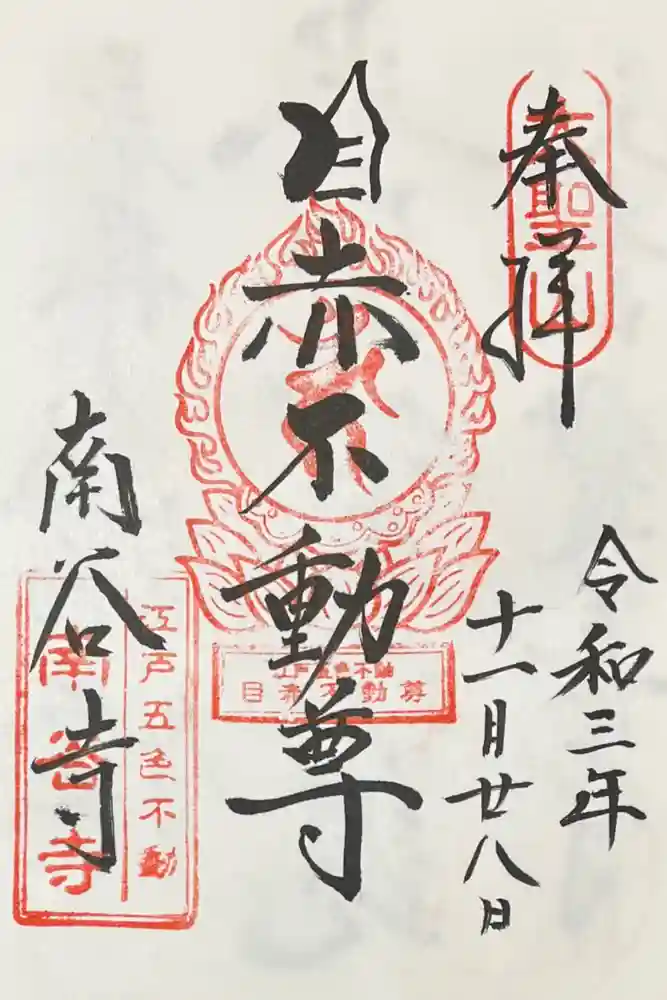 奉拝
令和三年
十一月廿八日
目赤不動尊
江戸五色不動
目赤不動尊
南谷寺
江戸五色不動
南谷寺